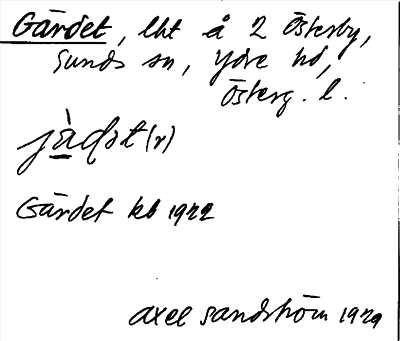 Gärdet, lht å 2 Österby,
Sunds sn, Ydre hd,
Österg. l.
jàḍət (r)
Gärdet kb 1922
Axel Sandström 1929